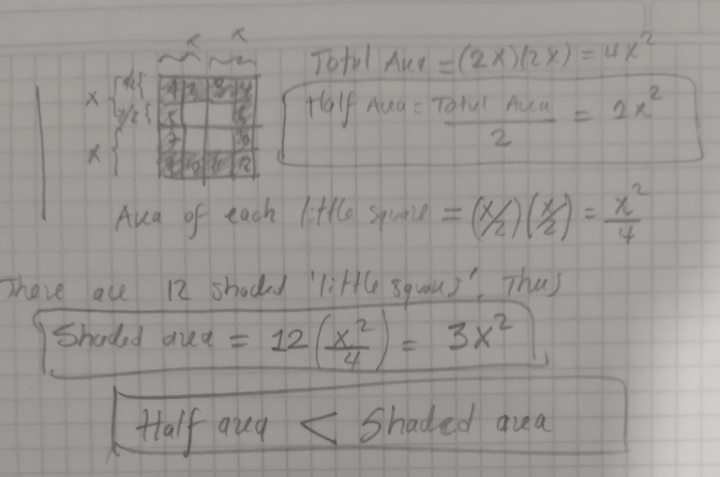 x x
Total Area = (2x)(2x) = 4x²
x x/2 1 2 3 4
x/2 5 6
x 7 8
9 10 11 12
Half Area = Total Area / 2 = 2x²
Area of each little square = (x/2)(x/2) = x²/4
There are 12 shaded 'little squares'. Thus
Shaded area = 12(x²/4) = 3x²
Half area < Shaded area